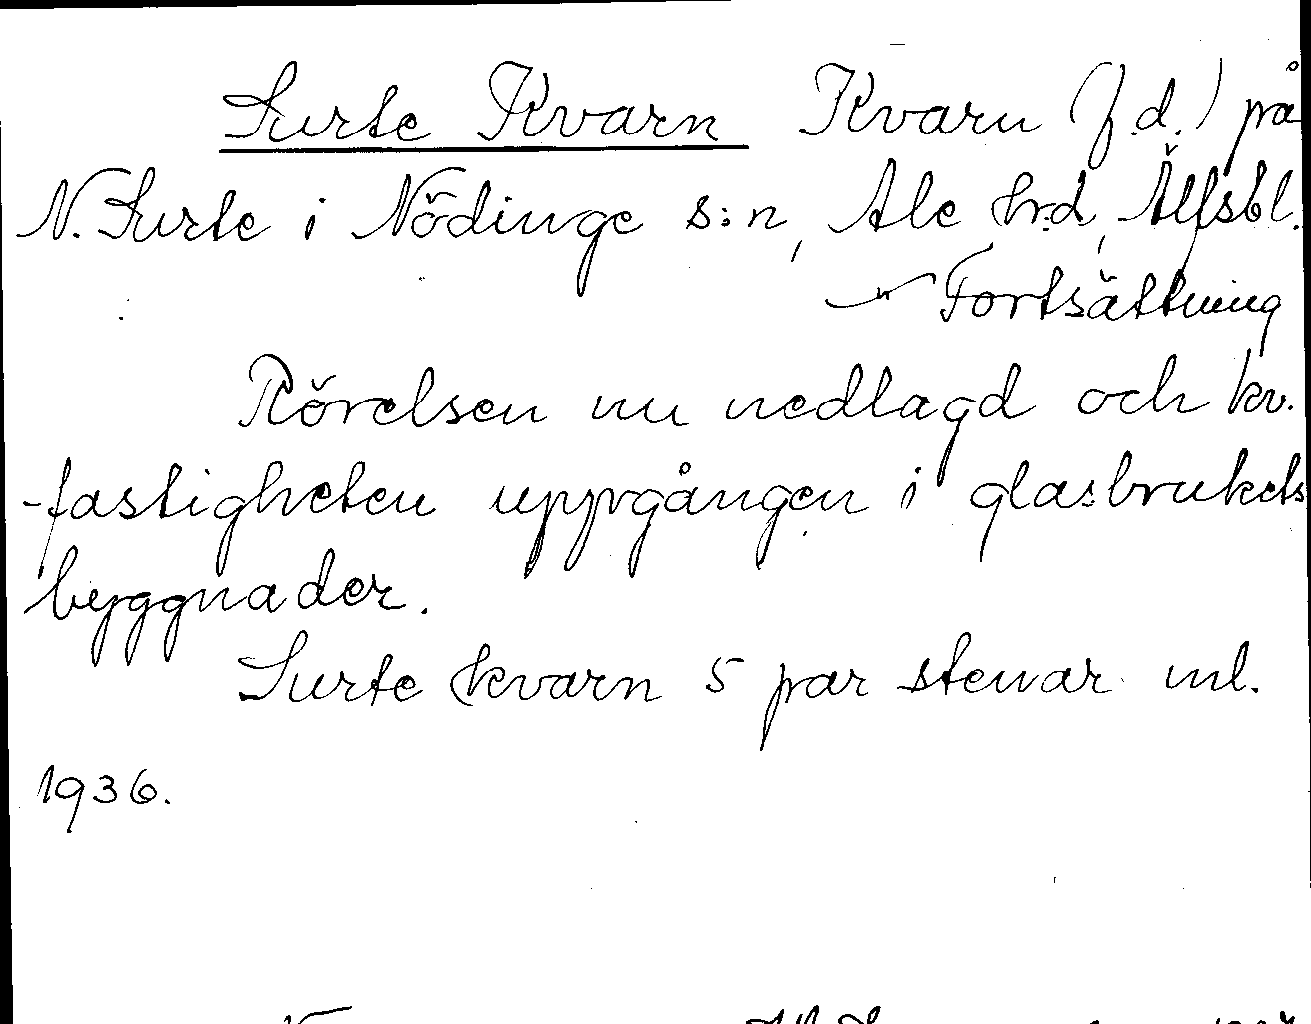 Surte Kvarn Kvarn (f.d.) på
N. Surte i Nödinge s:n, Ale hrd, Älfsbl.
Fortsättning
Rörelsen nu nedlagd och kv.
-fastigheten uppgången i glasbrukets
byggnader.
Surte kvarn 5 par stenar nl.
1936.